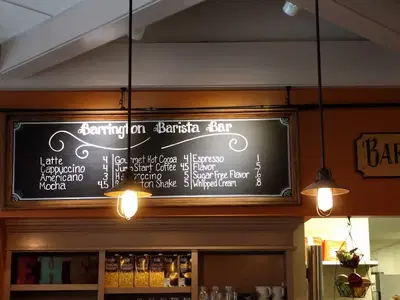 Barrington Barista Bar
Latte 4
Cappuccino 4
Americano 3
Mocha 4.5
Gourmet Hot Cocoa 4
Start Coffee 4.5
5
Shake 5
Espresso 1
Flavor .5
Sugar Free Flavor
Whipped Cream
BAR